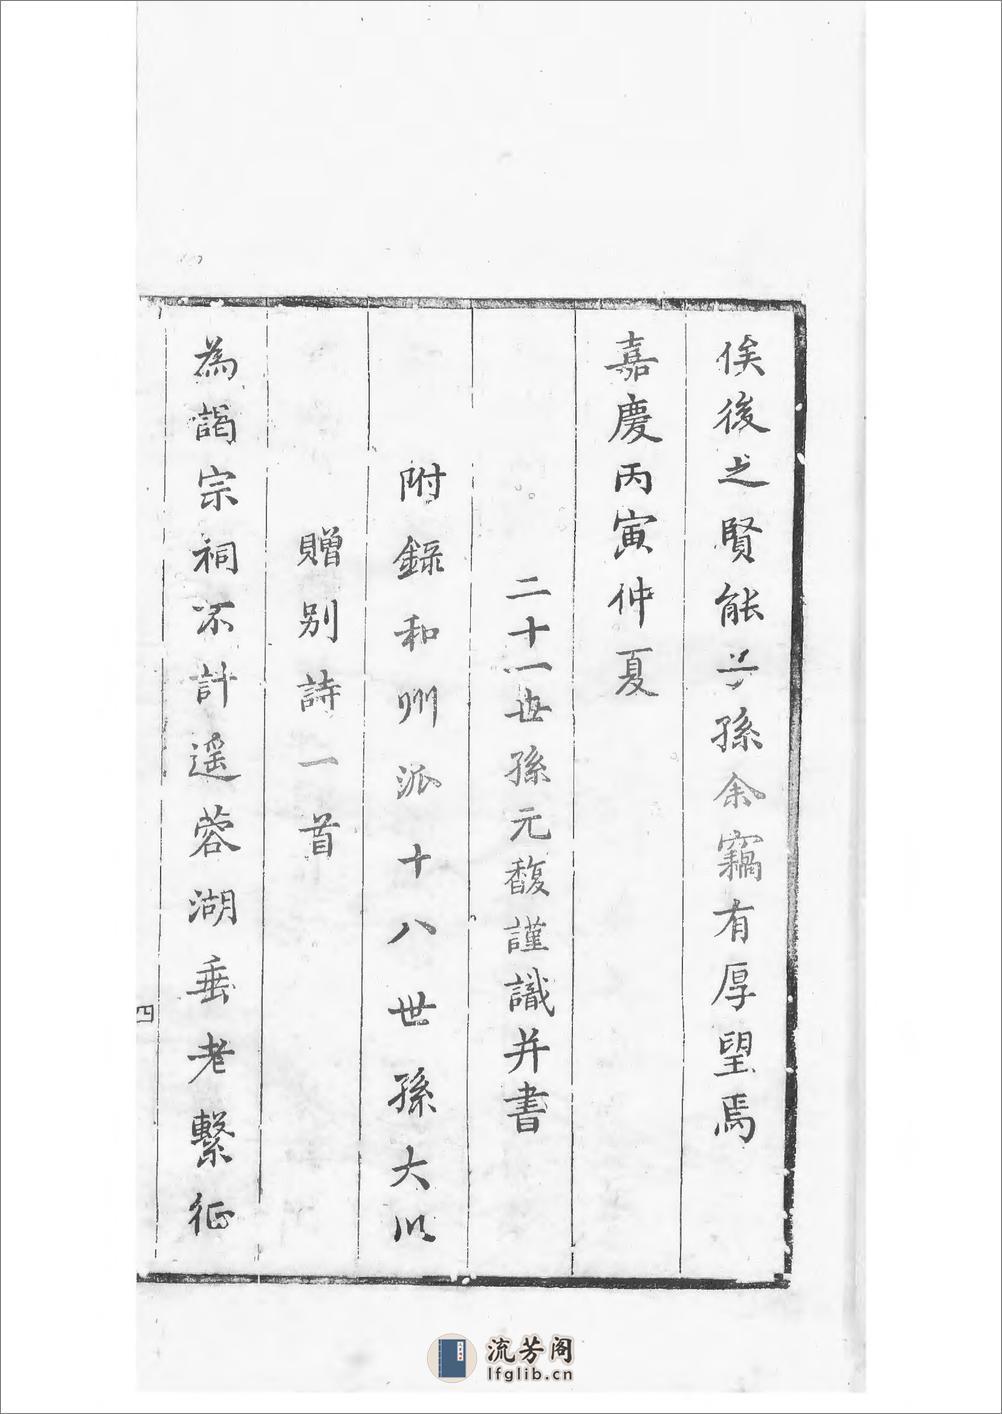 俟後之賢能子孫余竊有厚望焉
嘉慶丙寅仲夏
二十一世孫元馥謹識并書
附錄和州派十八世孫大以
贈别詩一首
為謁宗祠不計遥蓉湖垂老繫征
四
流芳阁
lfglib.cn